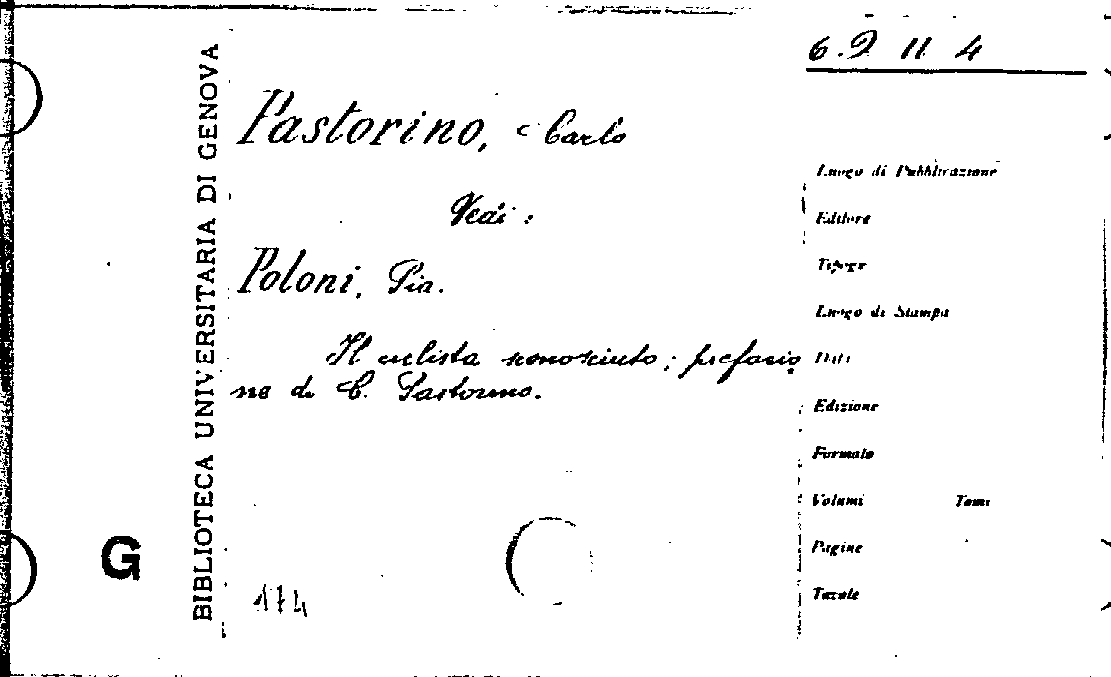 6.9 11 4
BIBLIOTECA UNIVERSITARIA DI GENOVA
Pastorino, Carlo
Vedi :
Poloni, Pia.
Il ciclista sconosciuto ; prefazio
ne di C. Pastorino.
174
G
Luogo di Pubblicazione
Editore
Tipogr
Luogo di Stampa
Data
Edizione
Formato
Volumi Tomi
Pagine
Tavole